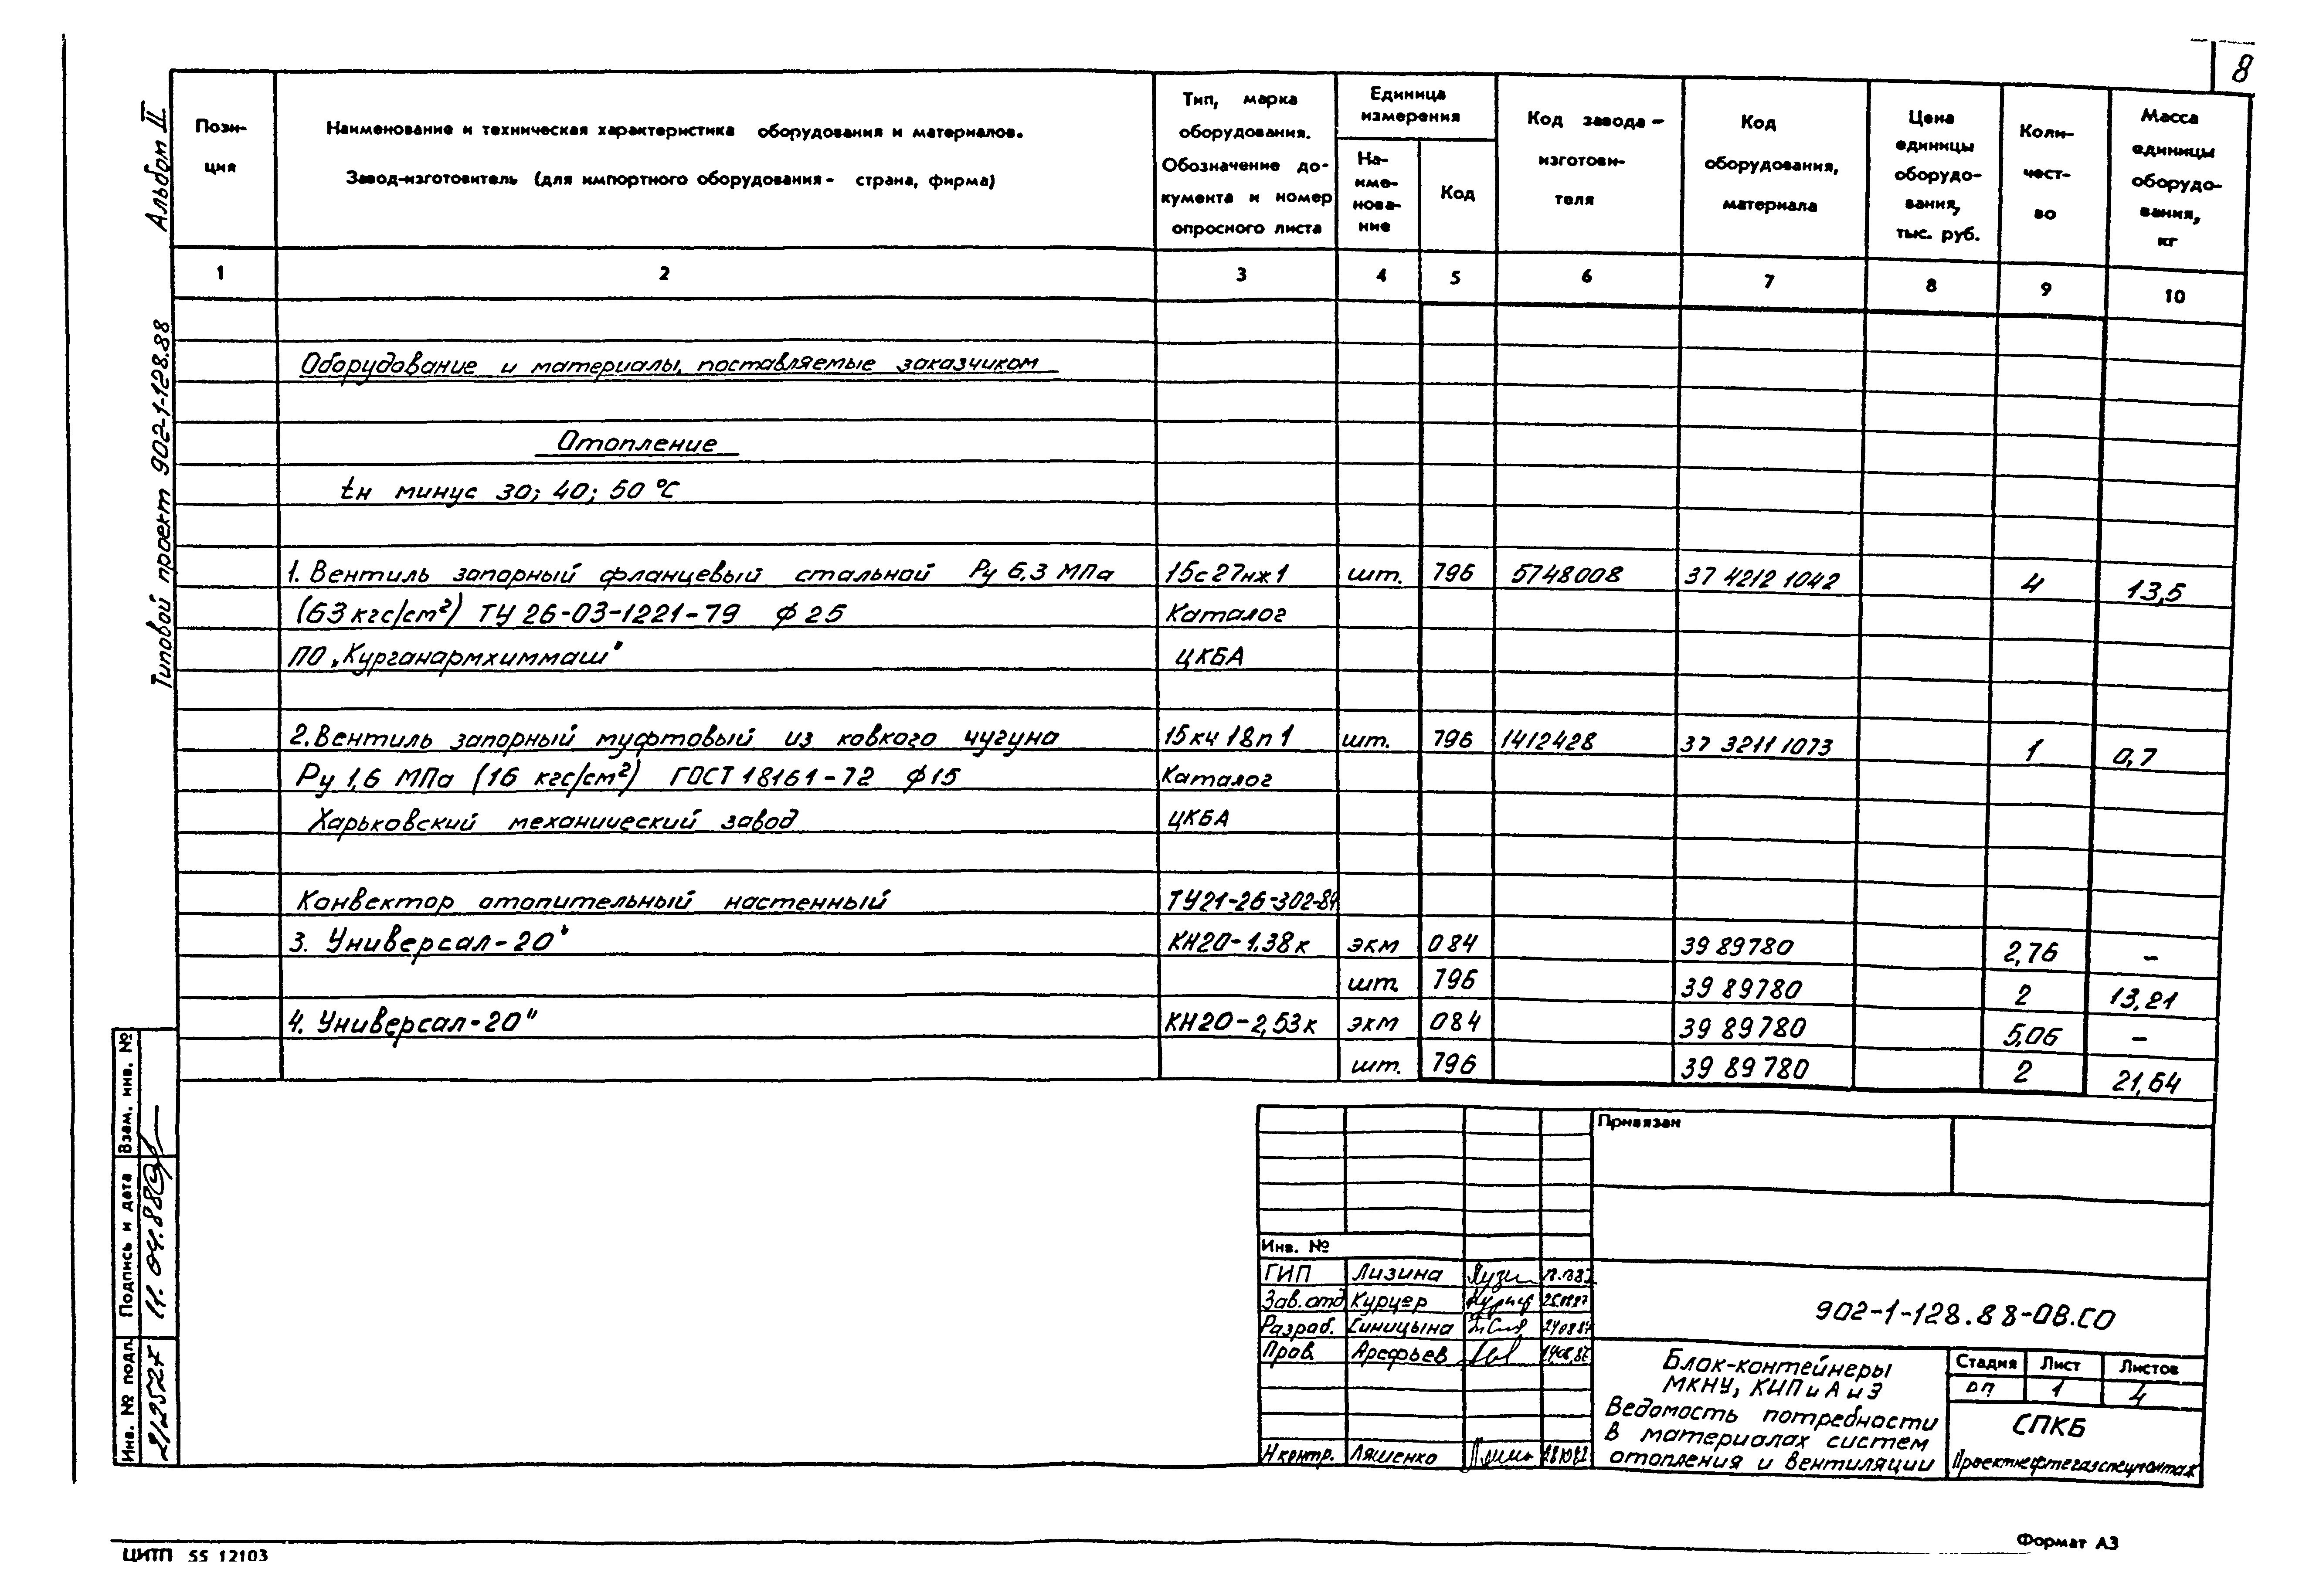 8
Альбом II
Типовой проект 902-1-128.88
Пози-
ция
Наименование и техническая характеристика оборудования и материалов.
Завод-изготовитель (для импортного оборудования - страна, фирма)
Тип, марка
оборудования.
Обозначение до-
кумента и номер
опросного листа
Единица
измерения
На-
име-
нова-
ние
Код
Код завода -
изготови-
теля
Код
оборудования,
материала
Цена
единицы
оборудо-
вания,
тыс. руб.
Коли-
чест-
во
Масса
единицы
оборудо-
вания,
кг
1 2 3 4 5 6 7 8 9 10
Оборудование и материалы, поставляемые заказчиком
Отопление
tн минус 30; 40; 50 °С
1. Вентиль запорный фланцевый стальной Ру 6,3 МПа 15с27нж1 шт. 796 5748008 37 4212 1042 4 13,5
(63 кгс/см²) ТУ 26-03-1221-79 ф 25 Каталог
ПО „Курганармхиммаш" ЦКБА
2. Вентиль запорный муфтовый из ковкого чугуна 15кч 18п1 шт. 796 1412428 37 3211 1073 1 0,7
Ру 1,6 МПа (16 кгс/см²) ГОСТ 18161-72 ф 15 Каталог
Харьковский механический завод ЦКБА
Конвектор отопительный настенный ТУ21-26-302-84
3. Универсал-20" КН20-1.38к экм 084 39 89780 2,76 –
шт. 796 39 89780 2 13,21
4. Универсал-20" КН20-2,53к экм 084 39 89780 5,06 –
шт. 796 39 89780 2 21,64
Взам. инв. №
Подпись и дата 11.04.88
Инв. № подл. 21252
Привязан
Инв. №
ГИП Лизина
Зав. отд Курцер
Разраб. Синицына 240887
Пров. Арефьев
Н контр. Ляшенко
902-1-128.88-ОВ.СО
Блок-контейнеры
МКНУ, КИПиА и Э
Ведомость потребности
в материалах систем
отопления и вентиляции
Стадия Лист Листов
РП 1 4
СПКБ
Проектнефтегазспецмонтаж
ЦИТП 55 12103
Формат А3